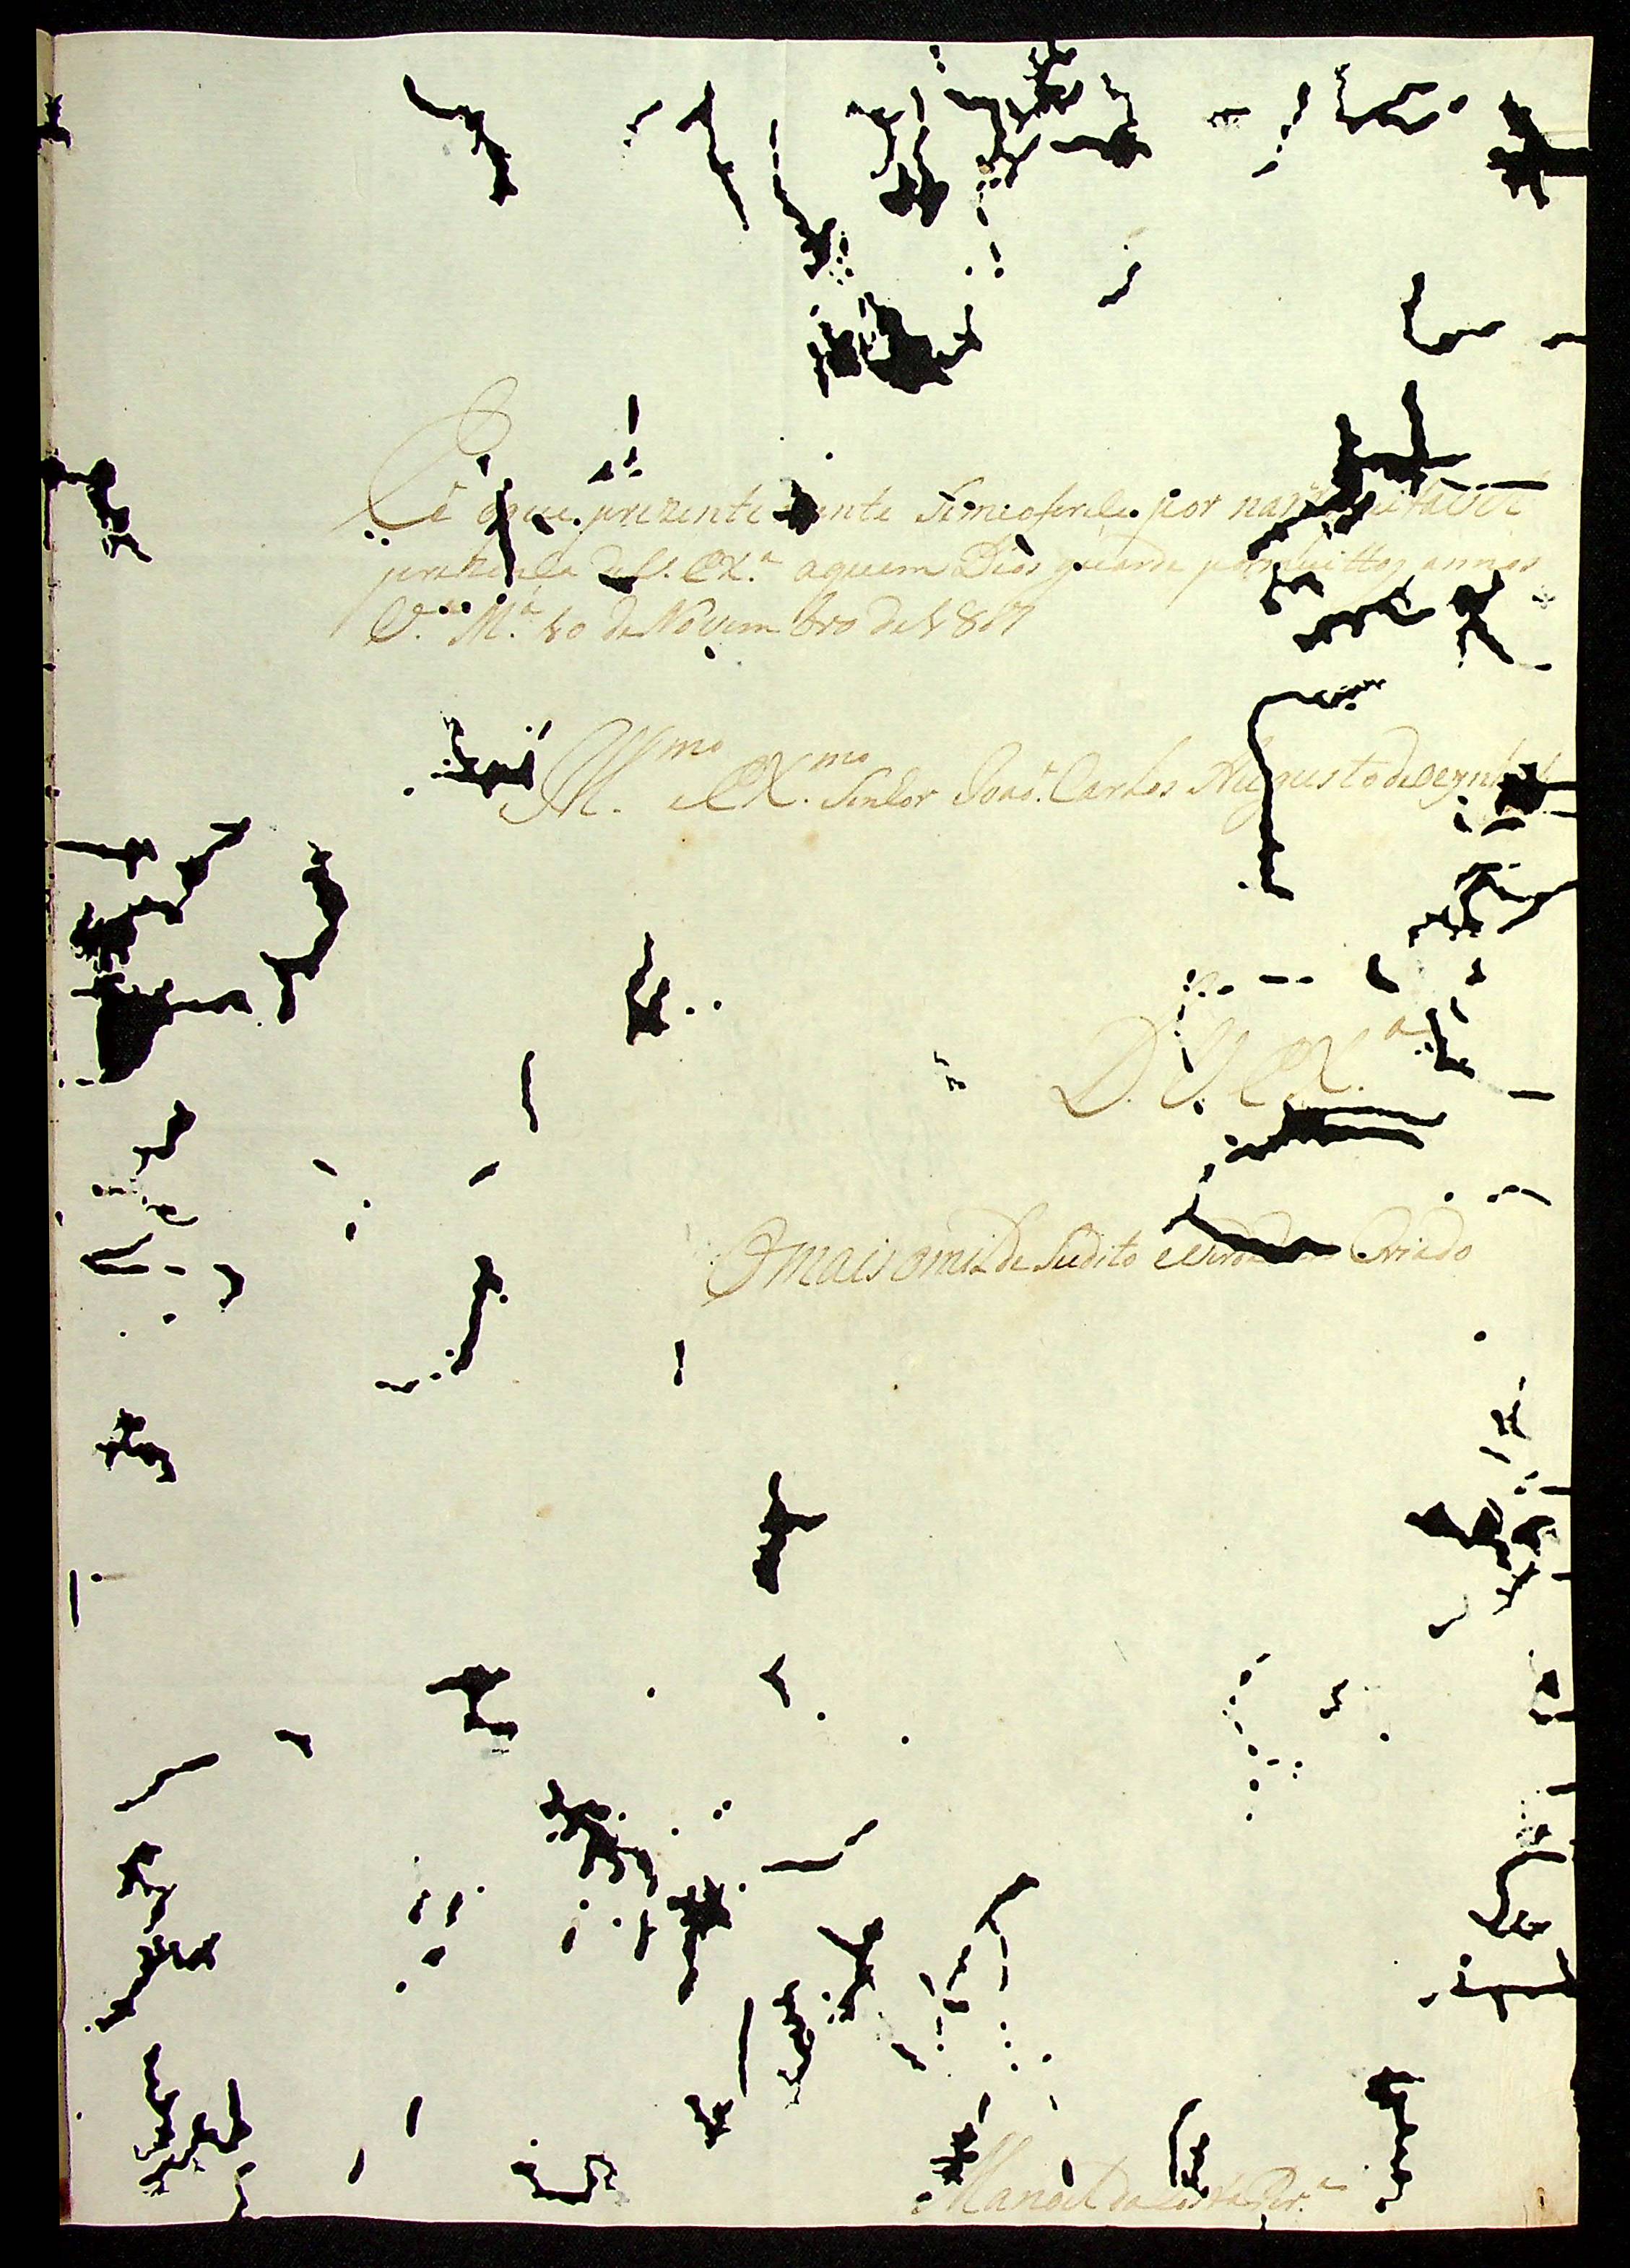 Hê oque prezente mente Seme oferese por nar
prezensa de V. EX.ª aquem Dios guarde por muittos annos
V.ª M.ª 10 de Novembro de 1817
Ill.mo e EX.mo Senhor Joaõ Carlos Augusto de Oeynh
D. V. EX.ª
O mais omilde Sudito e verda Criado
Manoel da Costa Per.ª